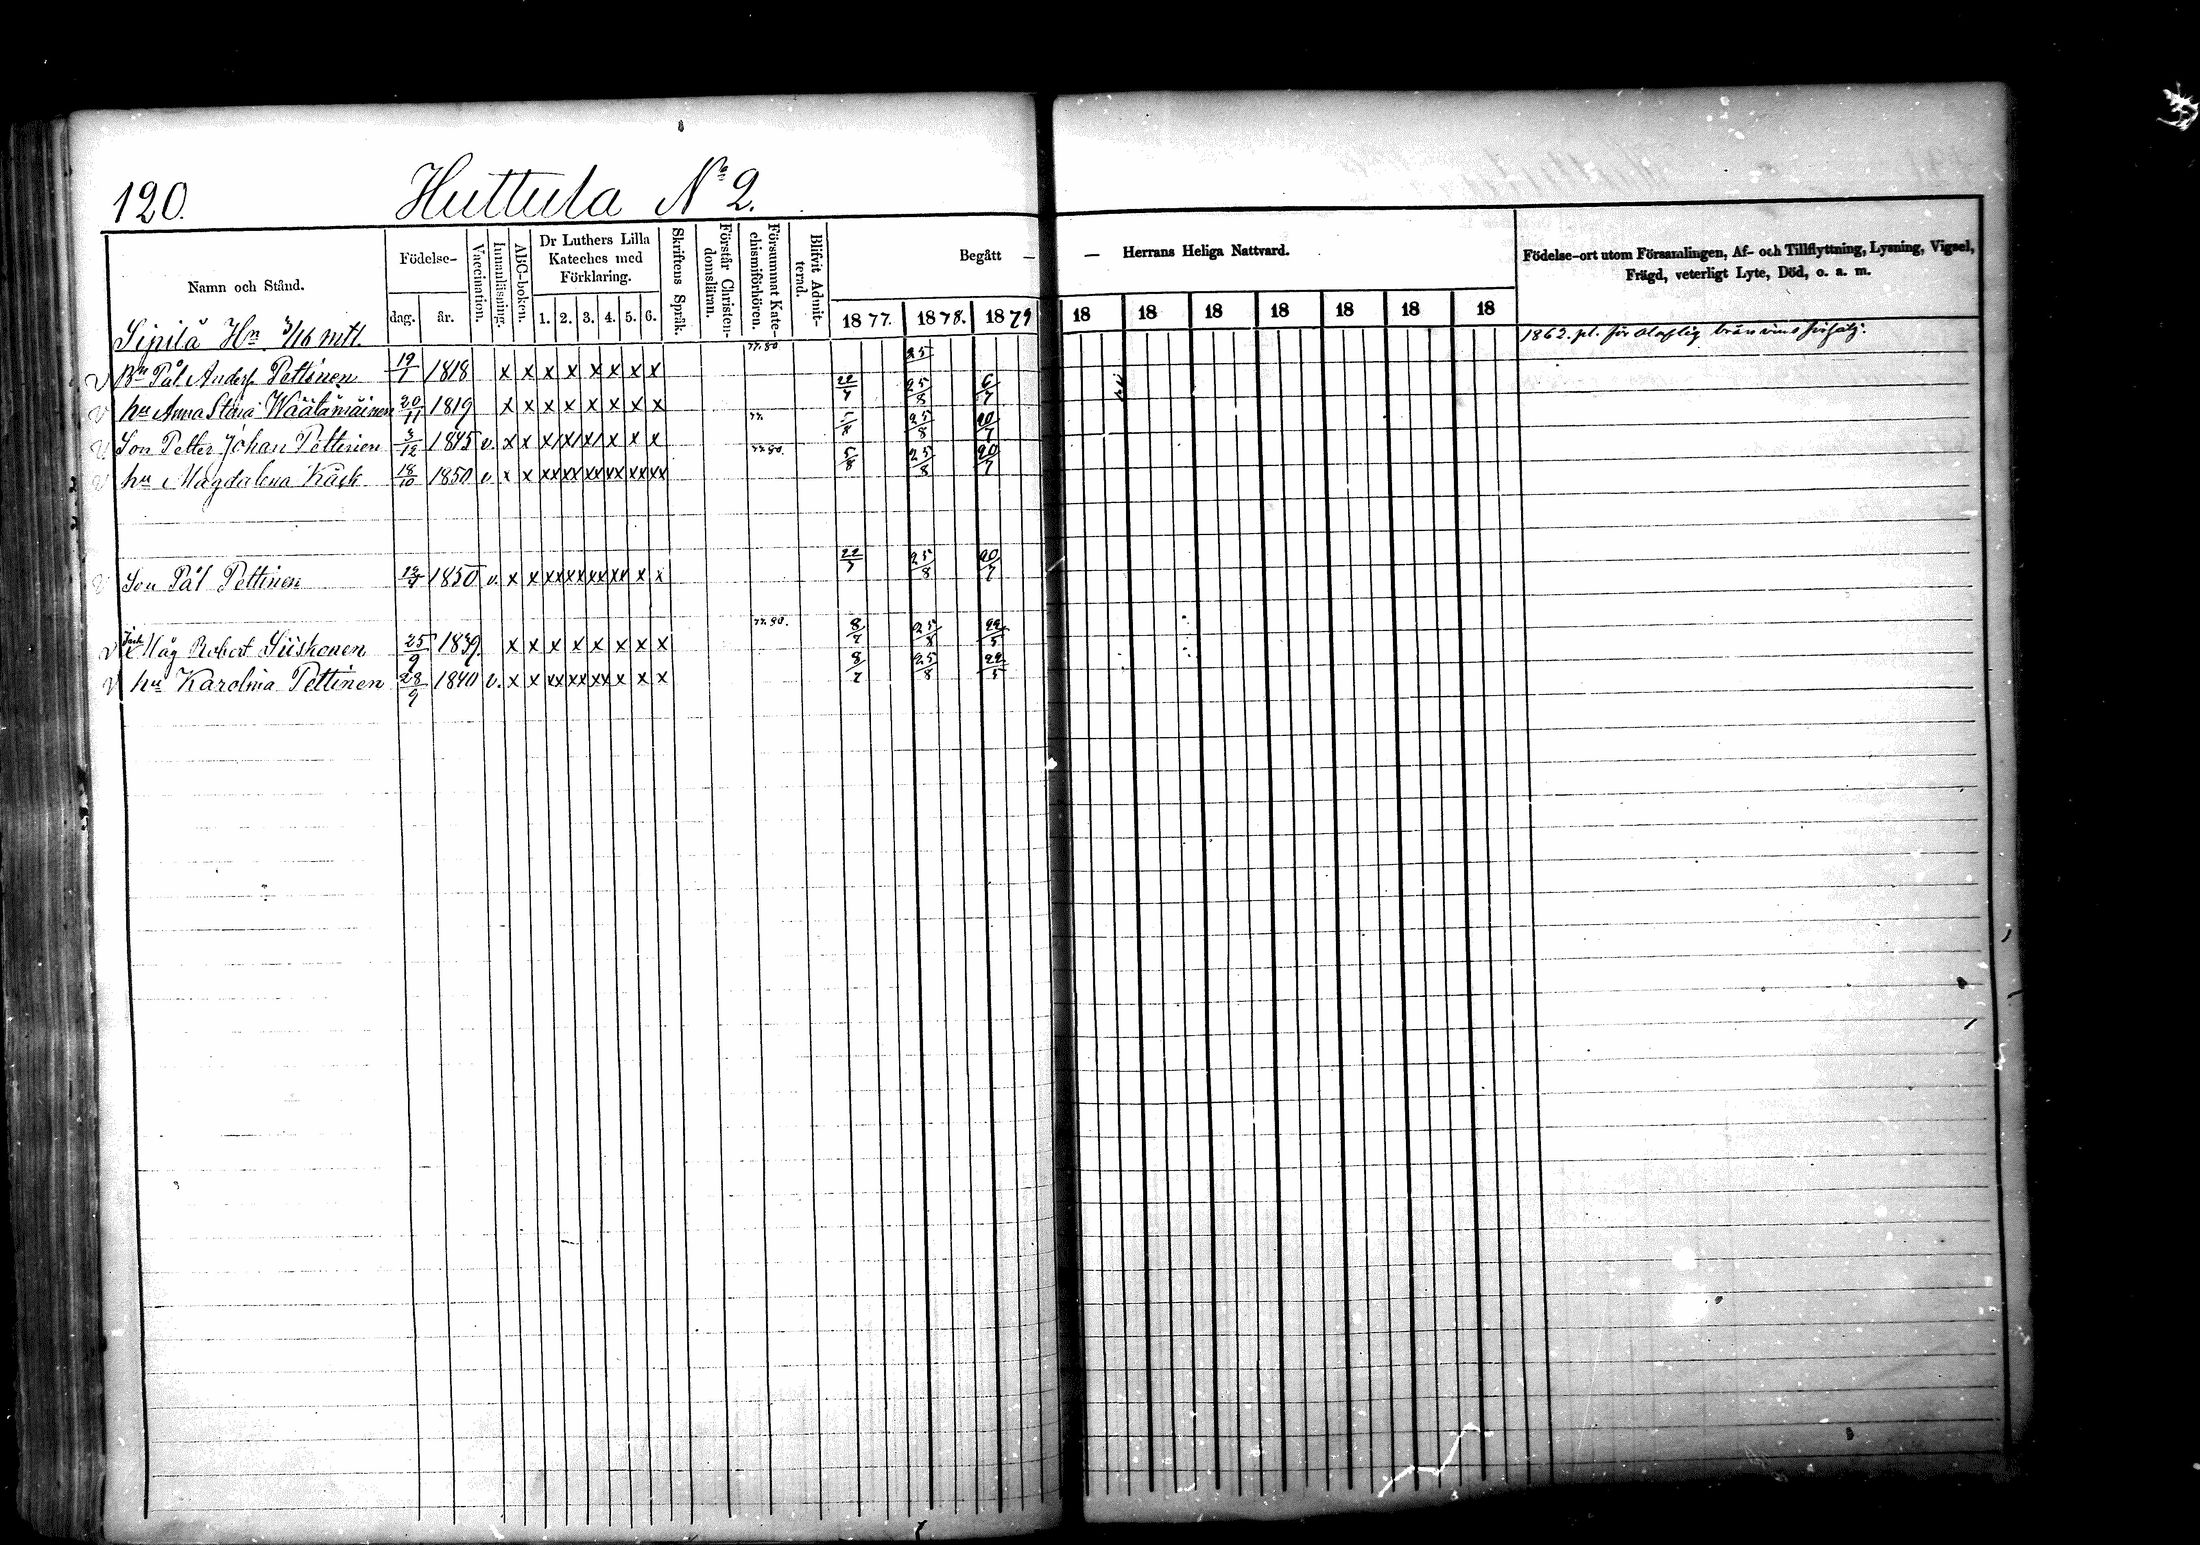 120. Huttula Nº 2.
Namn och Stånd. Födelse- dag. år. Vaccination. Innanläsning. ABC-boken. Dr Luthers Lilla Kateches med Förklaring. 1. 2. 3. 4. 5. 6. Skriftens Språk. Förstår Christendomsläran. Försummat Katechismiförhören. Blifvit Admitterad. Begått — — Herrans Heliga Nattvard. Födelse-ort utom Församlingen, Af- och Tillflyttning, Lysning, Vigsel, Frägd, veterligt Lyte, Död, o. a. m.
1877. 1878. 1879 18 18 18 18 18 18 18
Sipilä Hn 3/16 mtl
v Bn Pål Andersp Pettinen 19/7 1818 x x x x x x x x 77.80 25 1862. pl. för olaglig bränvins försälj.
v hu Anna Stina Wäätämäinen 20/11 1819 x x x x x x x x 22/7 25/8 6/7
v Son Petter Johan Pettinen 1845 v. x x x x x x x x 77. 25/8 20/7
v hu Magdalena Käck 18/10 1850 v. x x xx xx xx xx xx xx 77.80. 5/8 25/8 20/7
v Son Pål Pettinen 1850 v. x x xx xx xx xx x x 22/7 25/8 20/7
v Måg Robert Siiskonen 25/9 1839. x x x x x x x x 77.80. 8/7 25/8 22/5
v hu Karolina Pettinen 28/9 1840 v. x x xx xx xx x x x 8/7 25/8 22/5